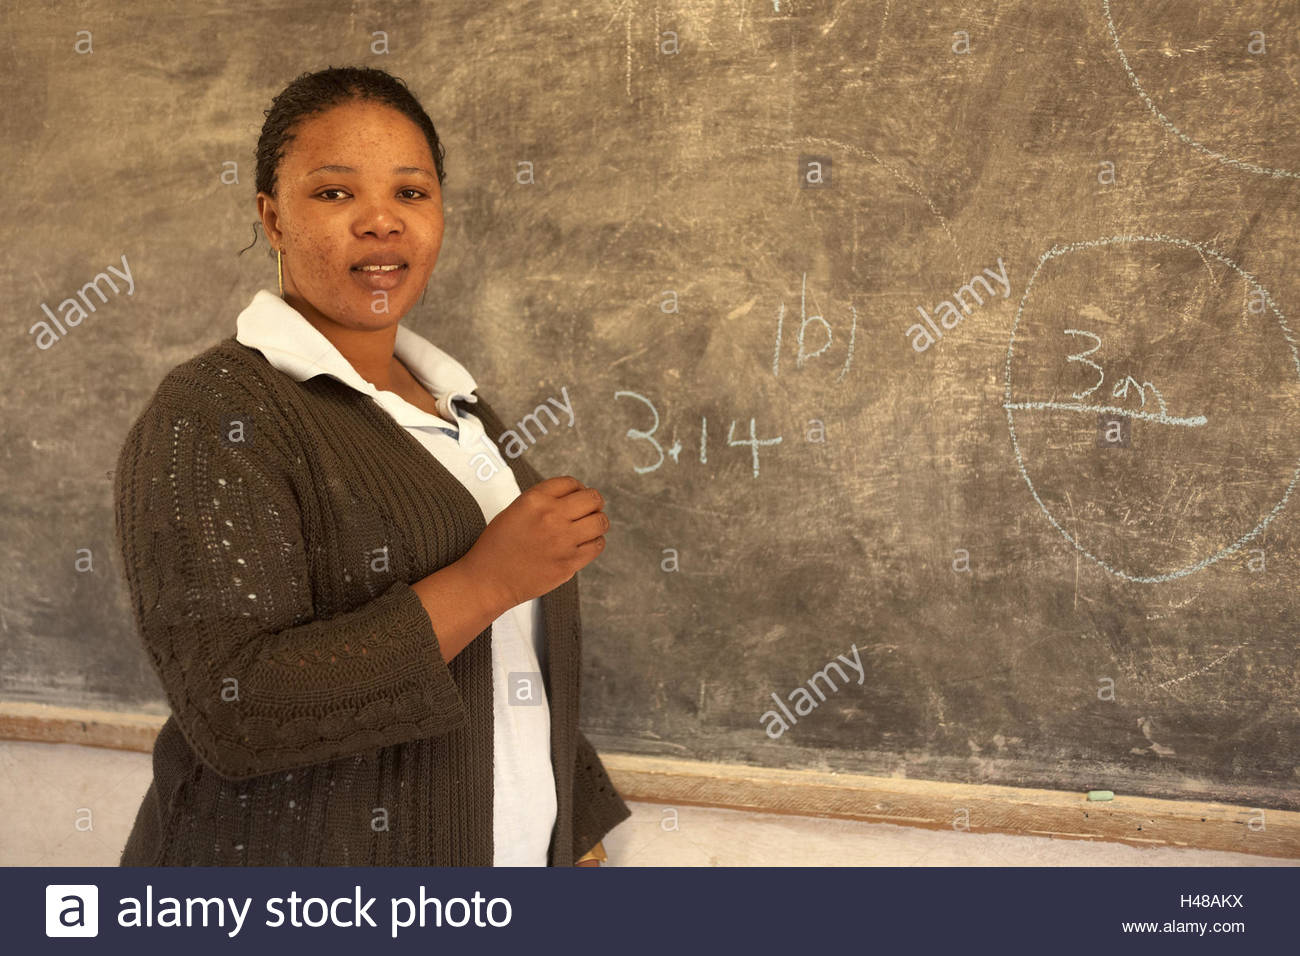 1b)
3.14
3cm
alamy
alamy
alamy
alamy
a alamy stock photo
H48AKX
www.alamy.com